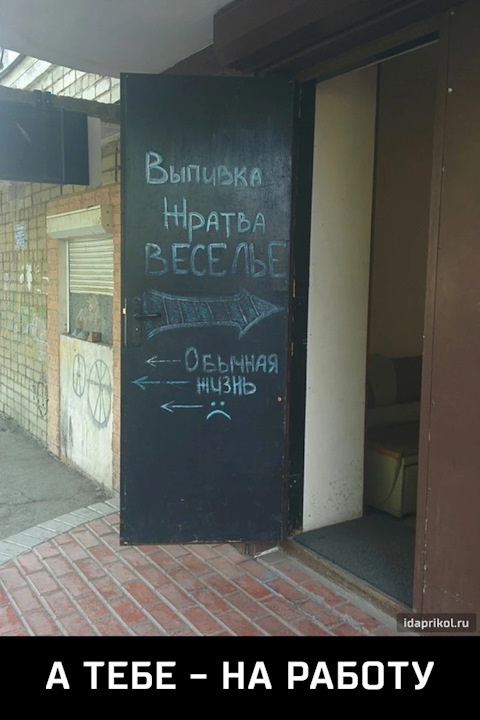 Выпивка
Жратва
ВЕСЕЛЬЕ
Обычная
жизнь
idaprikol.ru
А ТЕБЕ – НА РАБОТУ